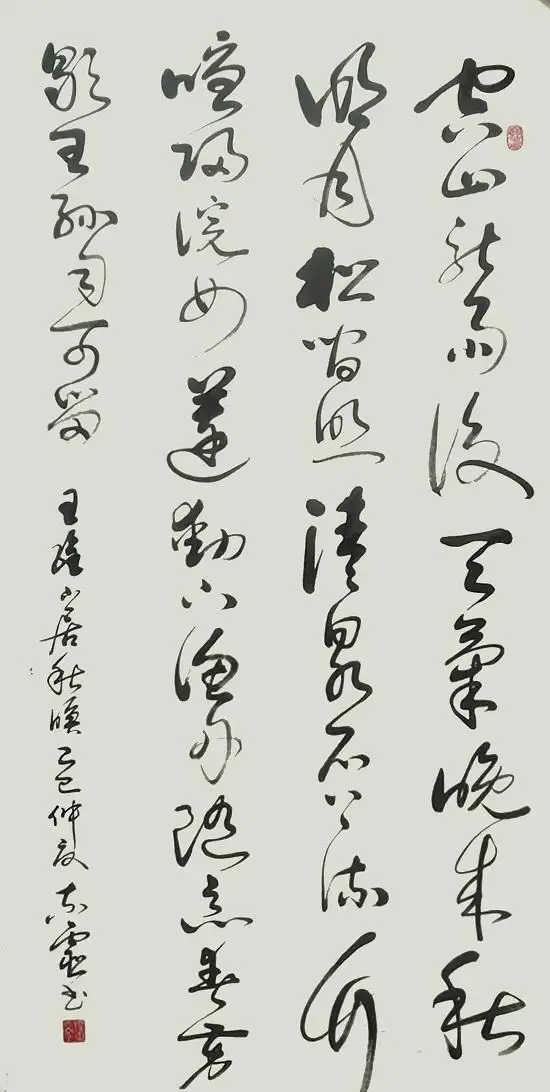 空山新雨後天氣晚來秋
明月松間照清泉石上流竹
喧歸浣女蓮動下漁舟隨意春芳
歇王孫自可留 王維山居秋暝乙巳仲夏 靈书